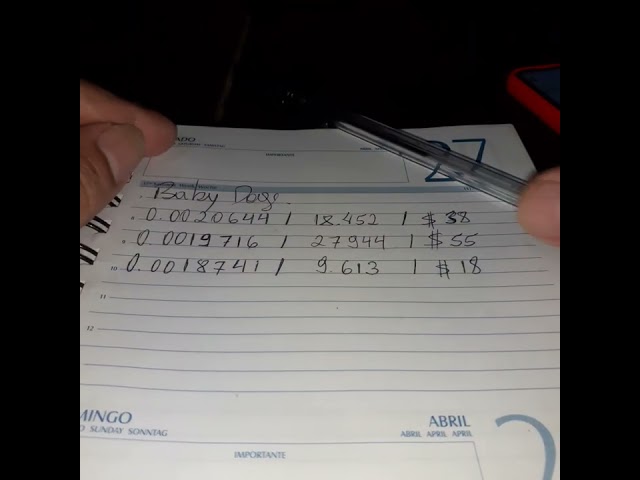 27
IMPORTANTE
Baby Doge.
8 0.0020644 / 18.452 / $ 38
9 0.0019716 / 27944 / $ 55
10 0.0018741 / 9.613 / $ 18
11
12
MINGO
SUNDAY SONNTAG
ABRIL
ABRIL APRIL APRIL
IMPORTANTE
2